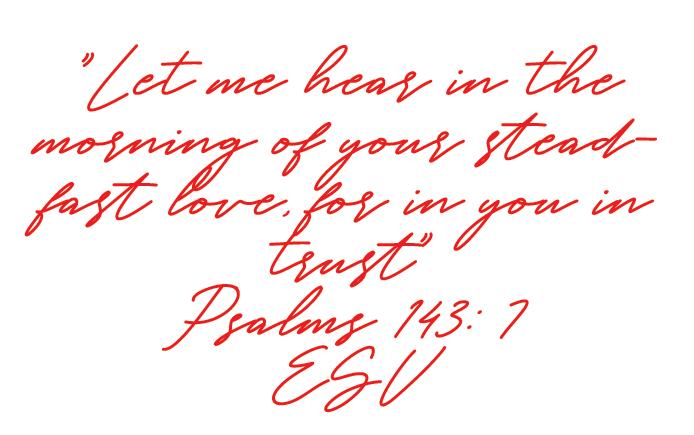 "Let me hear in the
morning of your stead-
fast love, for in you in
trust"
Psalms 143: 7
ESV